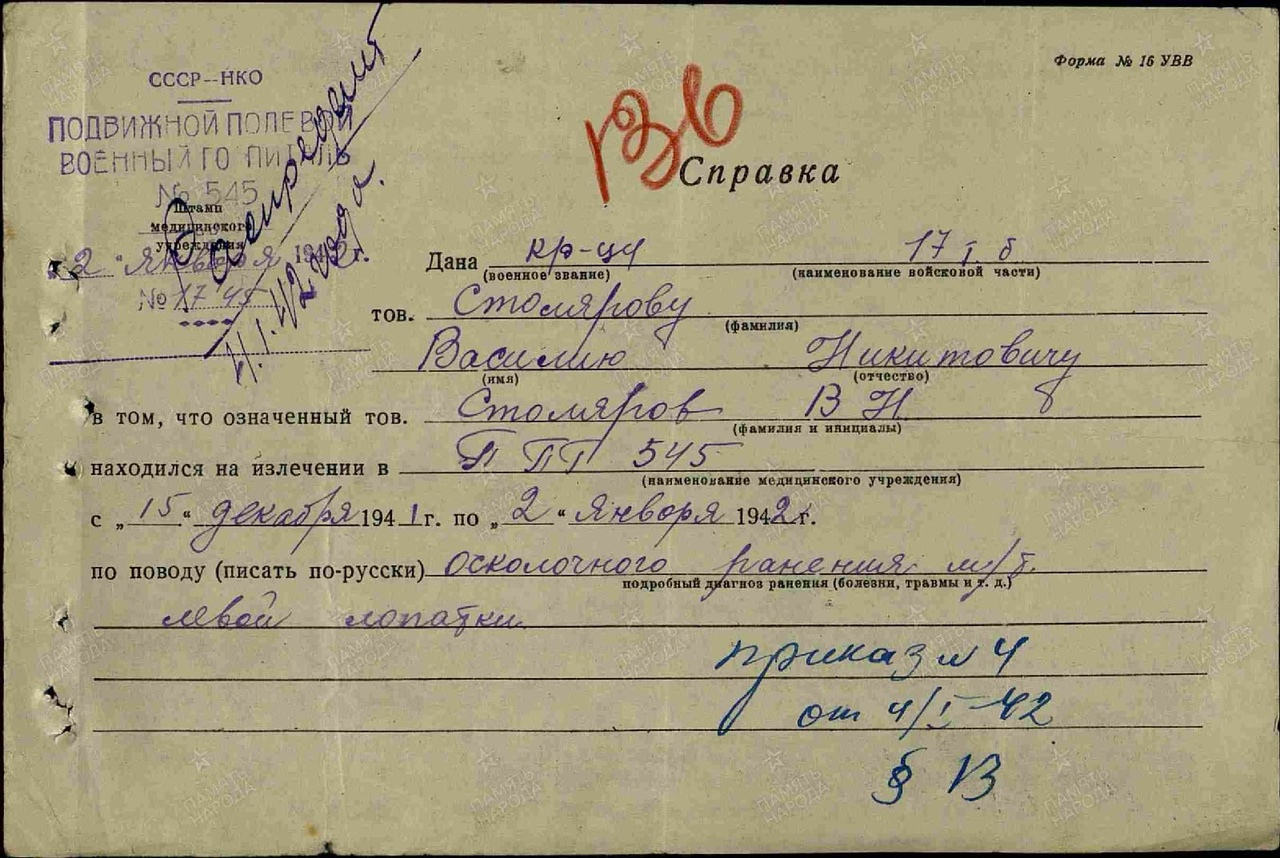 Форма № 16 УВВ
СССР--НКО
ПОДВИЖНОЙ ПОЛЕВОЙ
ВОЕННЫЙ ГО ПИТАЛЬ
№ 545
Штамп
медицинского
учреждения
"2" января 1942 г.
№ 1745
4/I 42 года
136
Справка
Дана кр-цу 17 т б
(военное звание) (наименование войсковой части)
тов. Столярову
(фамилия)
Василию Никитовичу
(имя) (отчество)
в том, что означенный тов. Столяров В Н
(фамилия и инициалы)
находился на излечении в П ПГ 545
(наименование медицинского учреждения)
с „15“ декабря 1941 г. по „2“ января 1942 г.
по поводу (писать по-русски) осколочного ранения м/т.
подробный диагноз ранения (болезни, травмы и т. д.)
левой лопатки
приказ № 4
от 4/I-42
§ 13